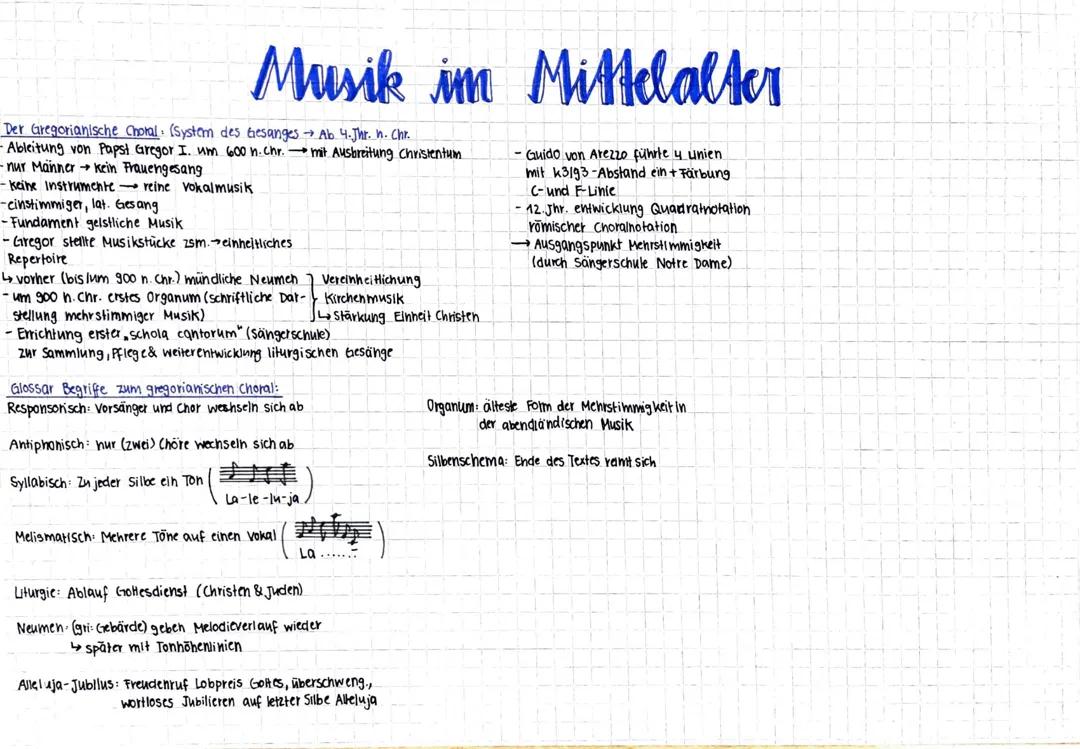 Musik im Mittelalter
Der Gregorianische Choral: (System des Gesanges → Ab 4. Jhr. n. Chr.
- Ableitung von Papst Gregor I. um 600 n. Chr. → mit Ausbreitung Christentum
- nur Männer → kein Frauengesang
- keine Instrumente → reine Vokalmusik
- einstimmiger, lat. Gesang
- Fundament geistliche Musik
- Gregor stellte Musikstücke zsm. → einheitliches
Repertoire
↳ vorher (bis/um 900 n. Chr.) mündliche Neumen
- um 900 n. Chr. erstes Organum (schriftliche Dar-
stellung mehrstimmiger Musik)
Vereinheitlichung
Kirchenmusik
↳ Stärkung Einheit Christen
- Errichtung erster "schola cantorum" (Sängerschule)
zur Sammlung, Pflege & weiterentwicklung liturgischen Gesänge
- Guido von Arezzo führte 4 Linien
mit k3/g3-Abstand ein + Färbung
C- und F-Linie
- 12. Jhr. entwicklung Quadratnotation
römischer Choralnotation
→ Ausgangspunkt Mehrstimmigkeit
(durch Sängerschule Notre Dame)
Glossar Begriffe zum gregorianischen Choral:
Responsorisch: Vorsänger und Chor wechseln sich ab
Antiphonisch: nur (zwei) Chöre wechseln sich ab
Syllabisch: Zu jeder Silbe ein Ton (
La-le-lu-ja )
Melismatisch: Mehrere Töne auf einen Vokal (
La ...... )
Liturgie: Ablauf Gottesdienst (Christen & Juden)
Neumen: (gri: Gebärde) geben Melodieverlauf wieder
↳ später mit Tonhöhenlinien
Alleluja-Jubilus: Freudenruf Lobpreis Gottes, überschweng.,
wortloses Jubilieren auf letzter Silbe Alleluja
Organum: älteste Form der Mehrstimmigkeit in
der abendländischen Musik
Silbenschema: Ende des Textes reimt sich